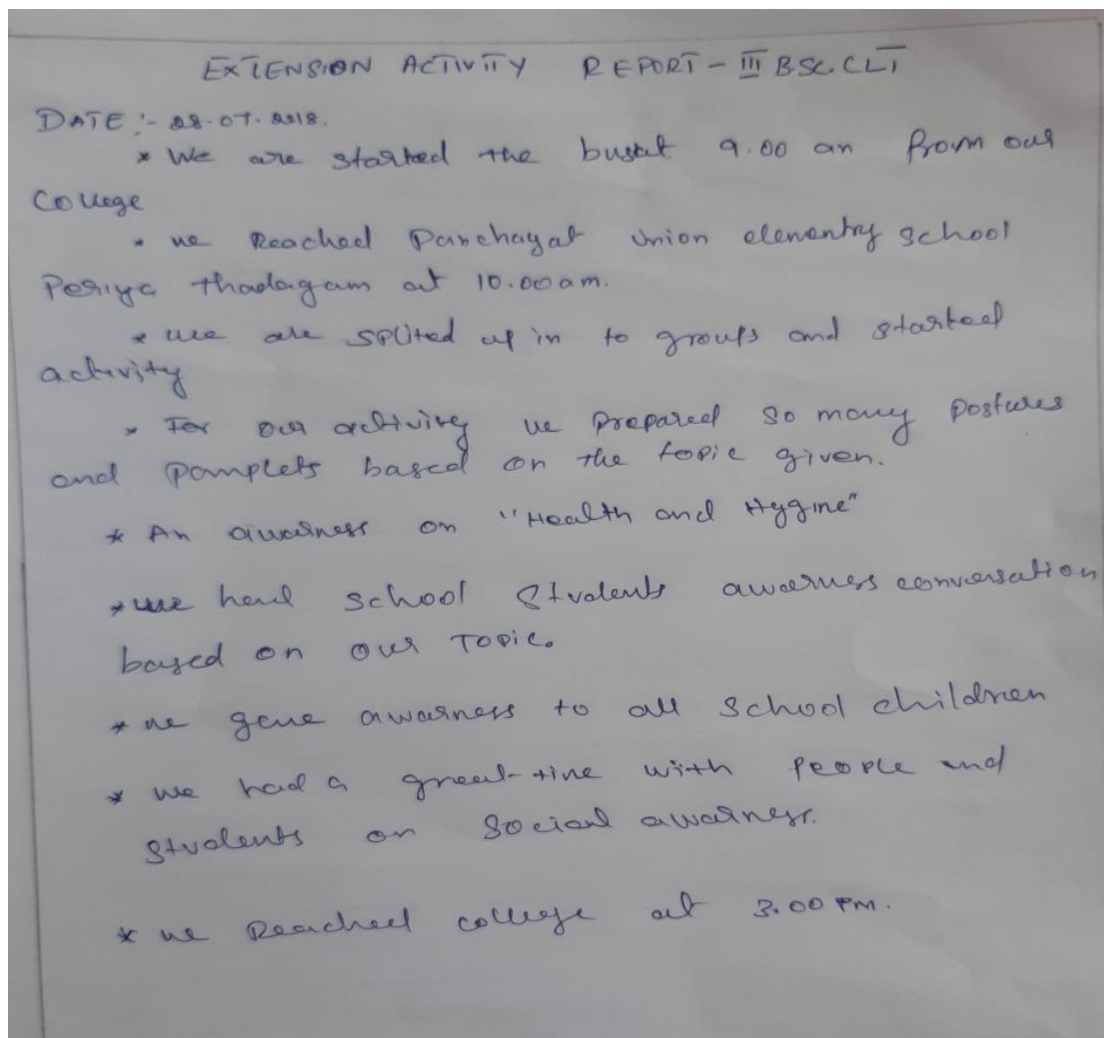 EXTENSION ACTIVITY REPORT - III BSC. CLT
DATE :- 28.07.2018.
* We are started the busat 9.00 am from our
College
* we Reached Panchayat Union elementry school
Periya thadagam at 10.00am.
* we are splited up in to groups and started
activity
* For our activity we prepared so many postures
and pamplets based on the topic given.
* An awarness on "Health and Hygine"
* we had school students awarness conversation
based on our Topic.
* we gave awarness to all school children
* we had a great time with people and
students on social awarness.
* we Reached college at 3.00 PM.